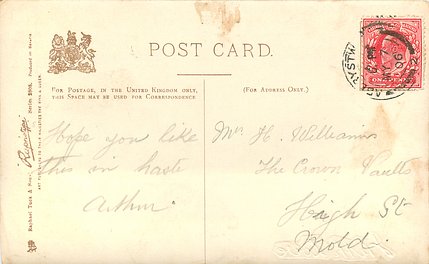 POST CARD.
FOR POSTAGE, IN THE UNITED KINGDOM ONLY,
THIS SPACE MAY BE USED FOR CORRESPONDENCE
(FOR ADDRESS ONLY.)
Hope you like
this in haste
Arthur
Mrs H. Williams
The Crown Vaults
High St
Mold.
Raphael Tuck & Sons'